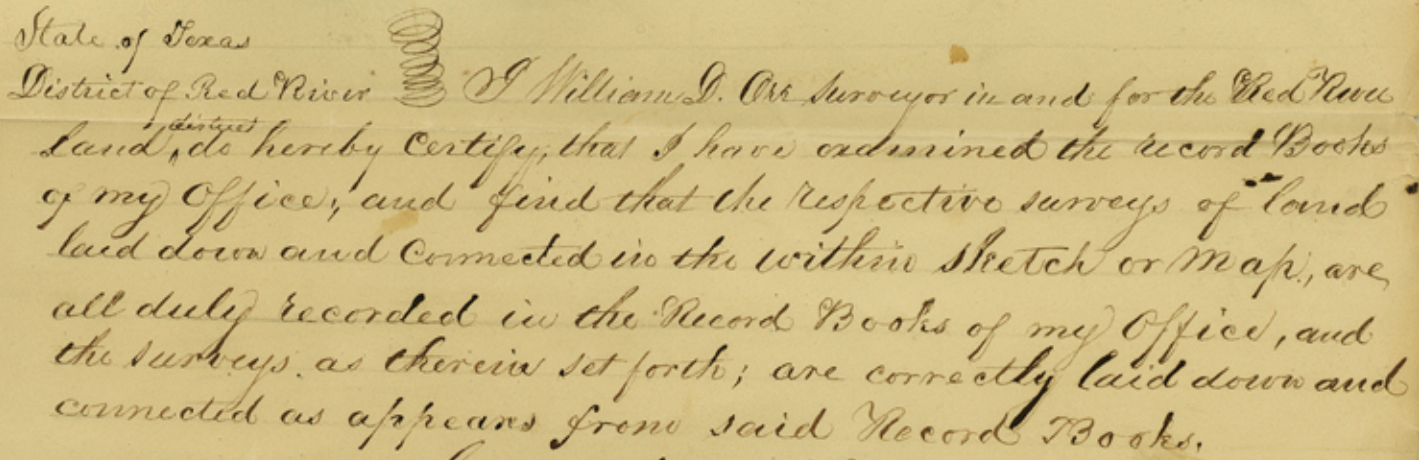 State of Texas
District of Red River I William D. Orr Surveyor in and for the Red River
Land, district do hereby Certify, that I have examined the record Books
of my Office; and find that the respective surveys of land
laid down and Connected in the within Sketch or Map, are
all duly recorded in the Record Books of my Office, and
the surveys as therein set forth; are correctly laid down and
connected as appears from said Record Books.